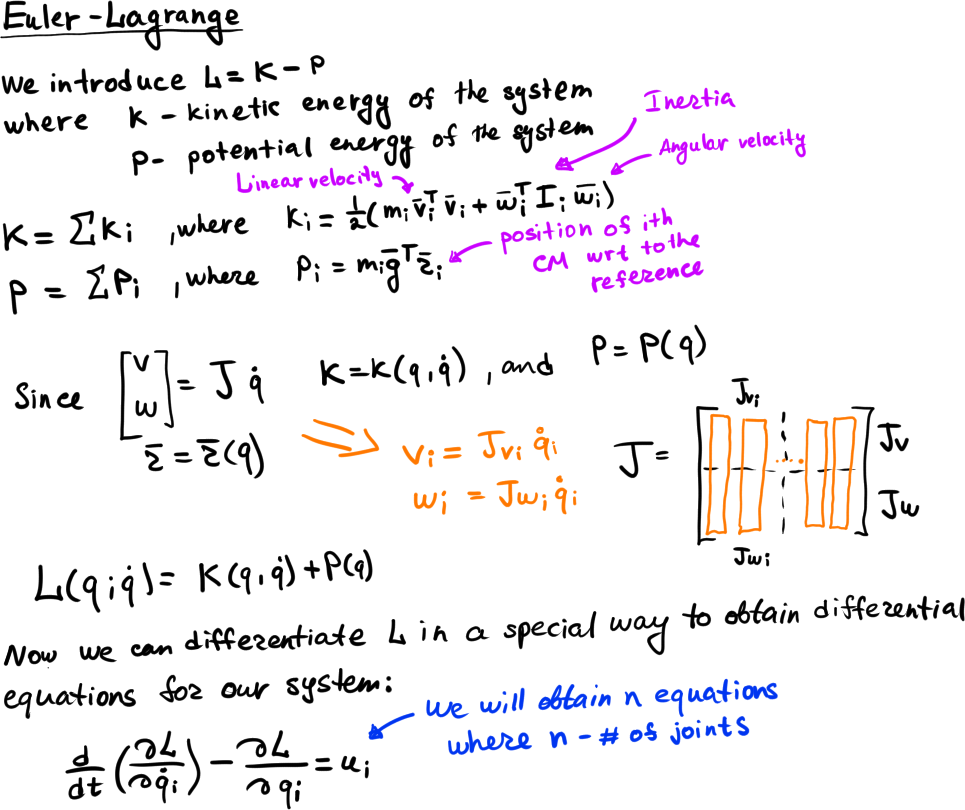 Euler-Lagrange
We introduce L = K - P
where K - kinetic energy of the system
P - potential energy of the system
Inertia
Angular velocity
Linear velocity
K = ΣKi , where Ki = 1/2 (mi v̄iᵀ v̄i + w̄iᵀ Ii w̄i)
P = ΣPi , where Pi = mi ḡᵀ r̄i
position of ith
CM wrt to the
reference
Since [v w] = J q̇ K = K(q, q̇) , and P = P(q)
r̄ = r̄(q)
vi = Jvi q̇i
wi = Jwi q̇i
J = [ .... ]
Jvi
Jv
Jw
Jwi
L(q; q̇) = K(q, q̇) + P(q)
Now we can differentiate L in a special way to obtain differential
equations for our system:
we will obtain n equations
where n - # of joints
d/dt (∂L/∂q̇i) - ∂L/∂qi = ui